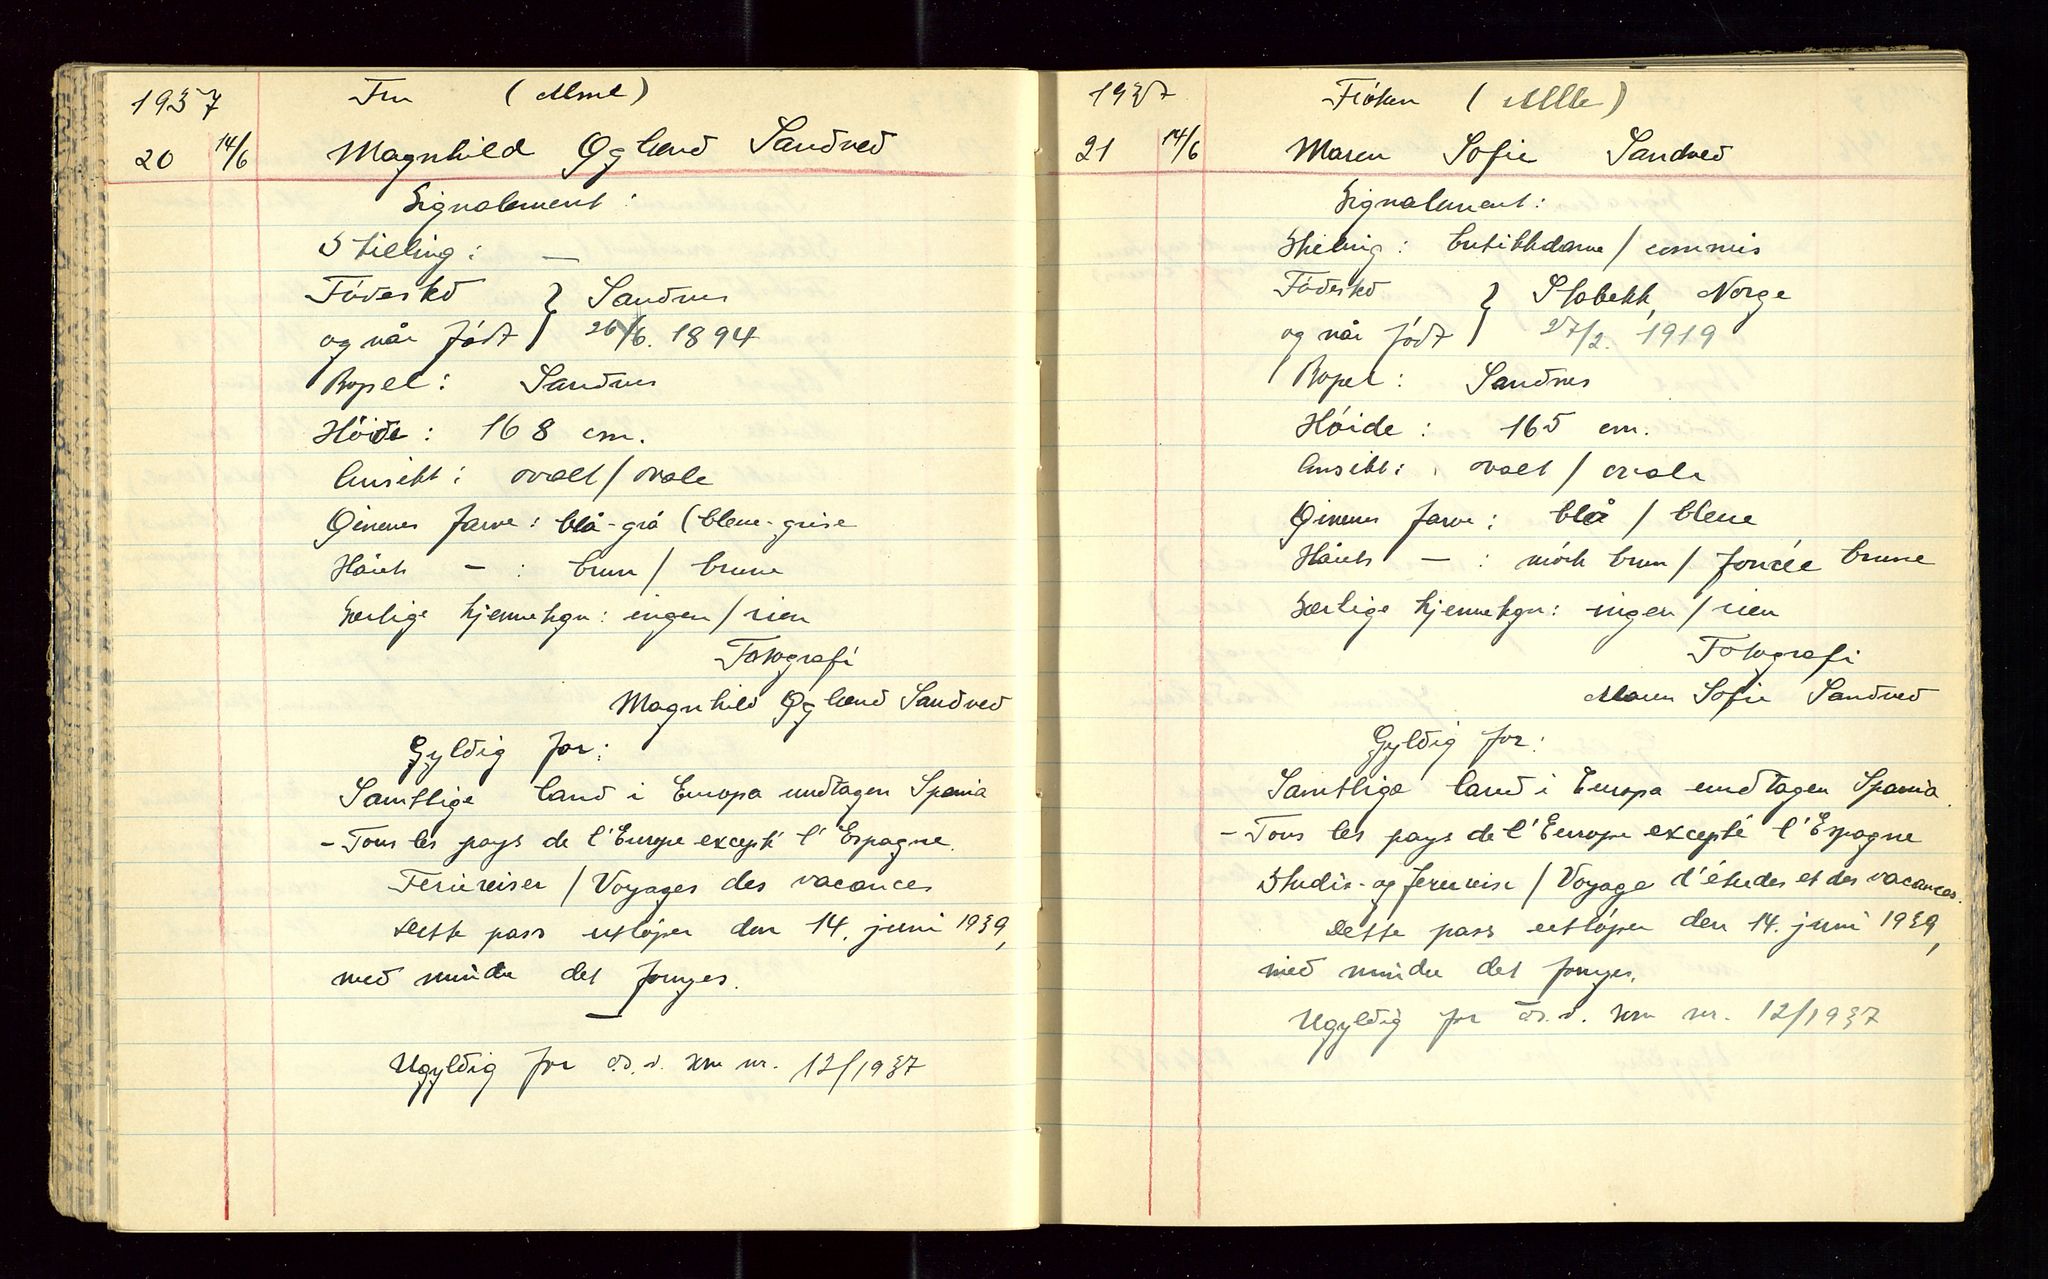 1937
Fru (Mme)
20 14/6 Magnhild Øglænd Sandved
Signalement:
Stilling: —
Fødested } Sandnes
og når født } 26/6. 1894
Bopel: Sandnes
Høide: 168 cm.
Ansikt: ovalt / ovale
Øinenes farve: blå-grå (bleue-grise
Hårets — : brun / brune
Særlige kjennetegn: ingen / rien
Fotografi
Magnhild Øglænd Sandved
Gyldig for:
Samtlige land i Europa undtagen Spania
- Tous les pays de l'Europe excepté l'Espagne.
Feriereiser / Voyages des vacances
Dette pass utløper den 14. juni 1939,
med mindre det fornyes.
—
Ugyldig for d.s.v. kom nr. 12/1937
1937
Frøken (Mlle)
21 14/6 Maren Sofie Sandved
Signalement:
Stilling: butikkdame / commis
Fødested } Stabekk, Norge
og når født } 27/2. 1919
Bopel: Sandnes
Høide: 165 cm.
Ansikt: ovalt / ovale
Øinenes farve: blå / bleue
Hårets — : mørk brun / foncée brune
Særlige kjennetegn: ingen / rien
Fotografi
Maren Sofie Sandved
Gyldig for:
Samtlige land i Europa undtagen Spania.
- Tous les pays de l'Europe excepté l'Espagne
Studie- og feriereise / Voyage d'études et des vacances.
Dette pass utløper den 14. juni 1939,
med mindre det fornyes.
Ugyldig for nr. 12/1937